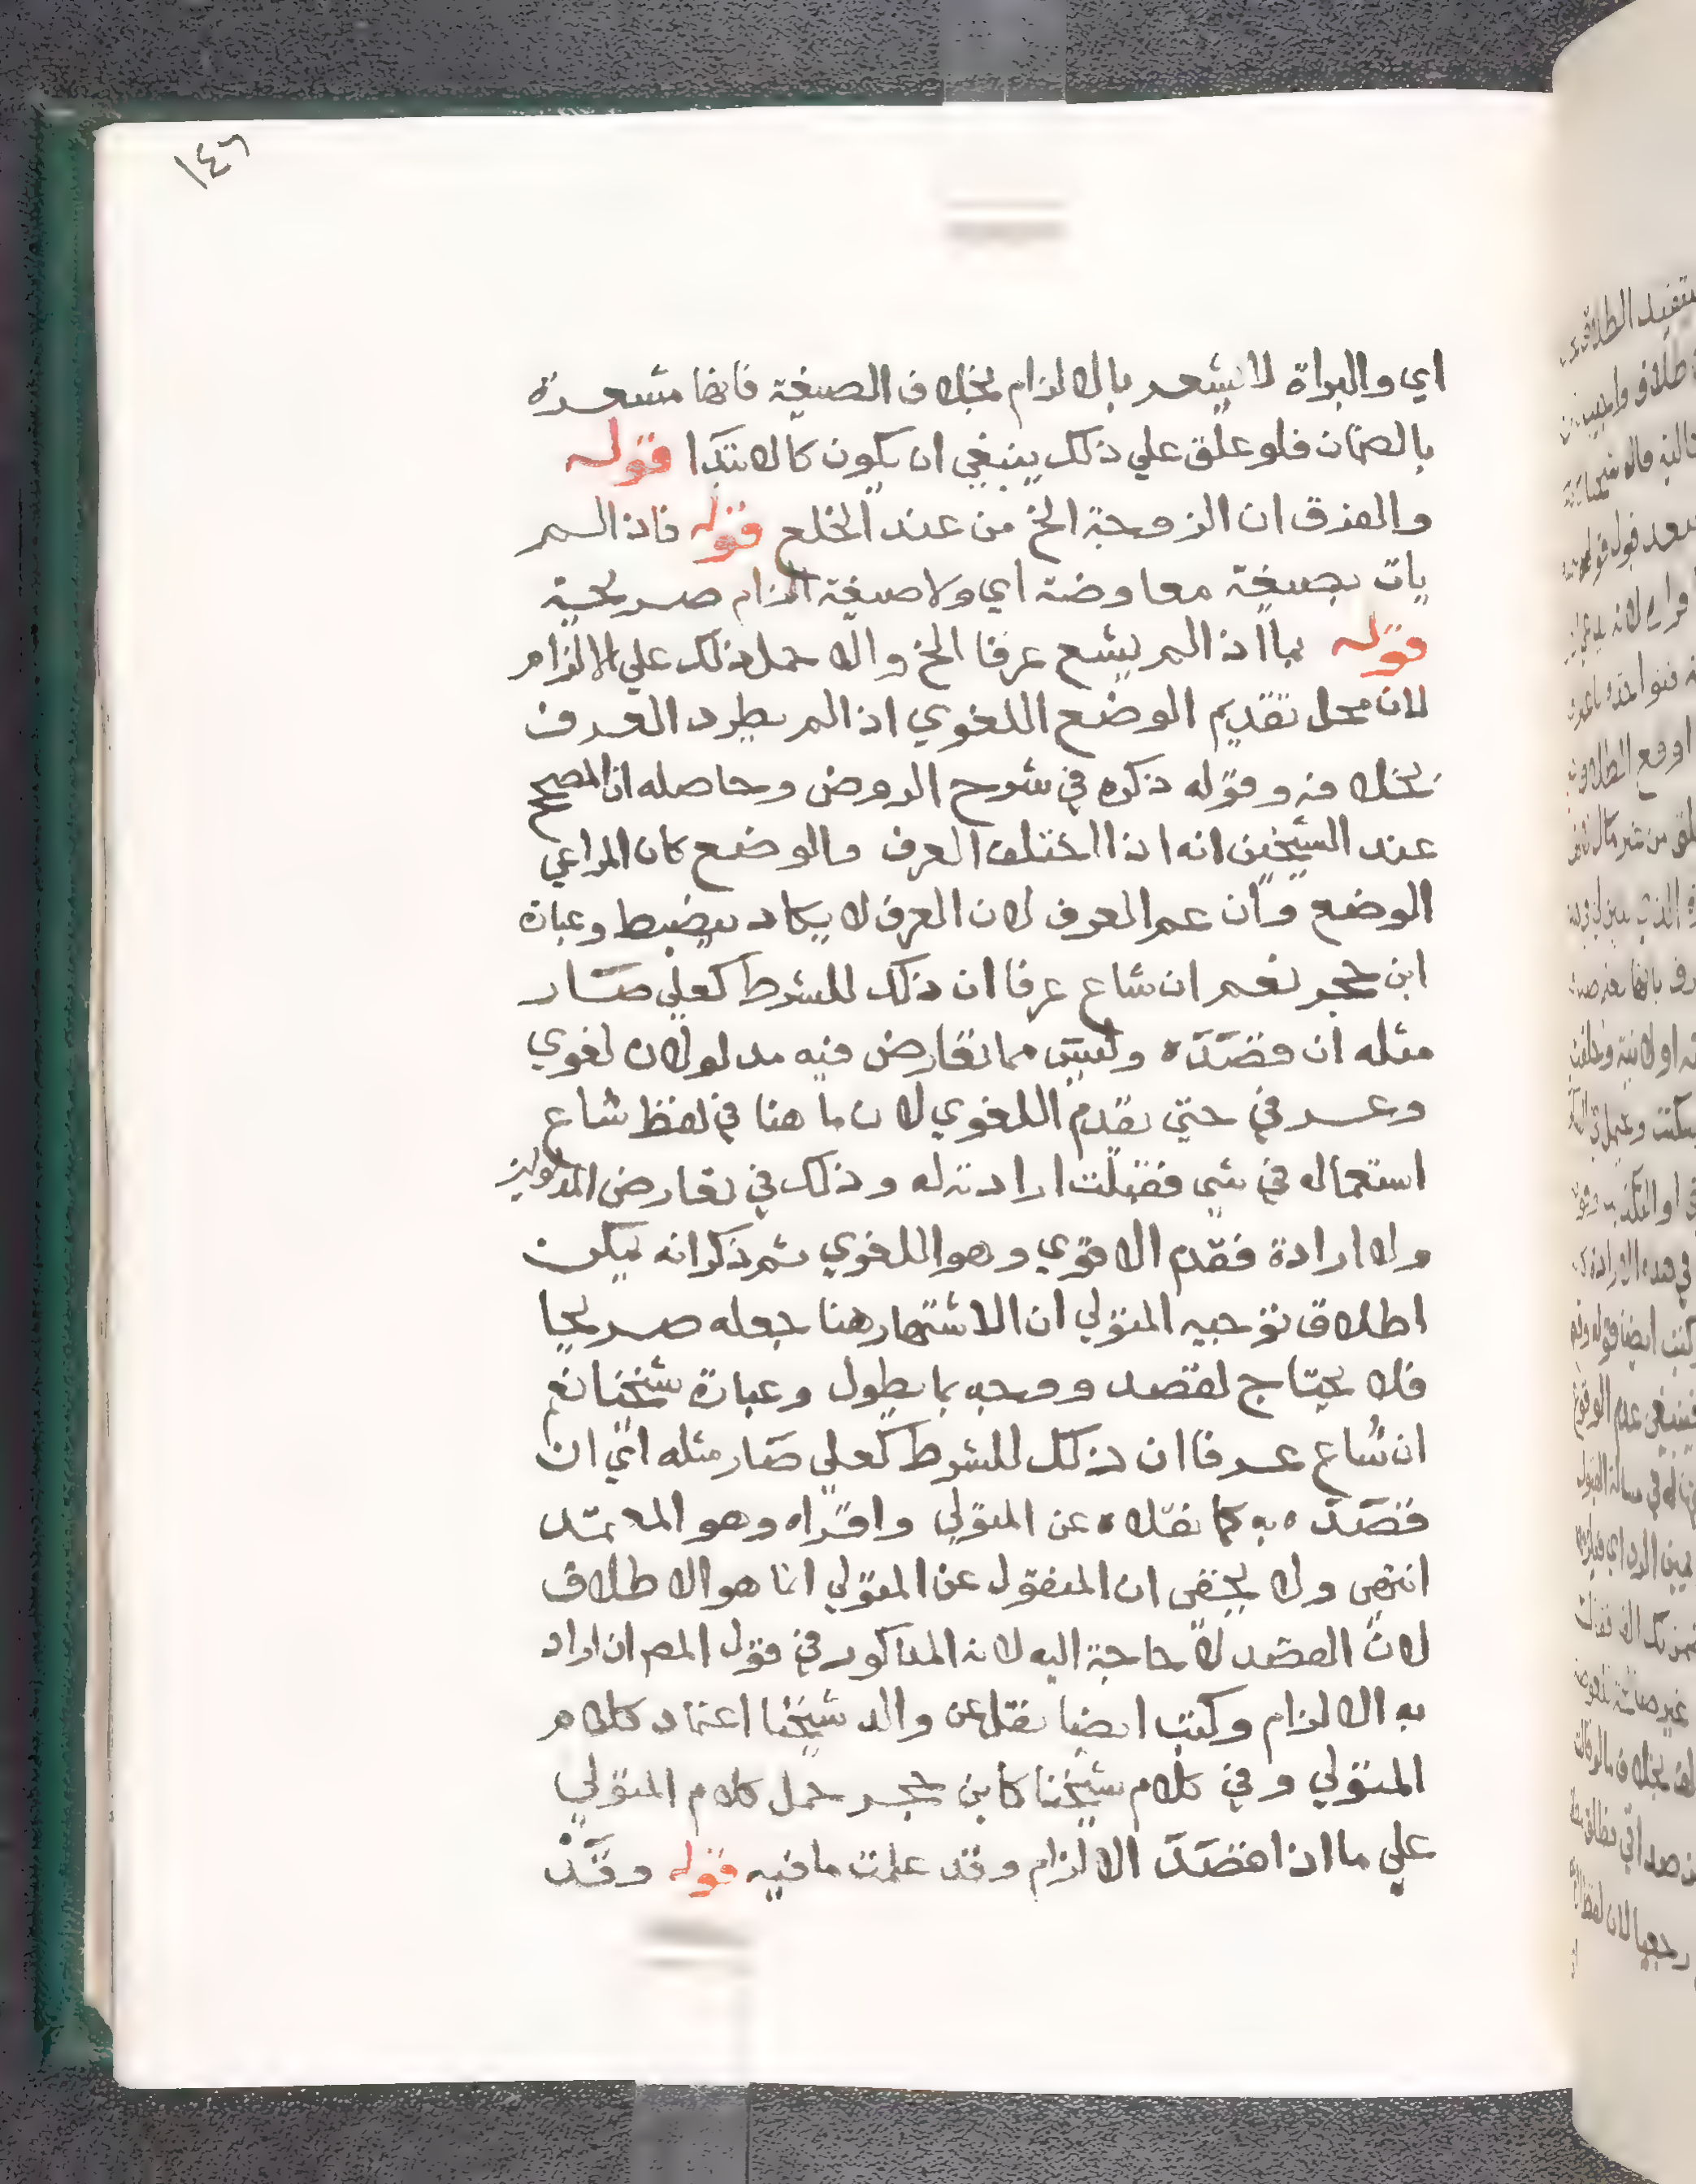 ١٤٦
اي والبراة لا يشعر بالالزام بخلاف الصيغة فانها مشعرة
بالضمان فلو علق علي ذلك ينبغي ان يكون كالابتدا قوله
والفرق ان الزوجة الخ من عند الخلع قوله فاذا لم
يات بصيغة معاوضة اي ولا صيغة الزام صريحية
قوله بما اذا لم يشع عرفا الخ والا حمل ذلك علي الالزام
لان محل تقديم الوضع اللغوي اذا لم يطرد العرف
بخلافه وقوله ذكره في شرح الروض وحاصله ان المصحح
عند الشيخين انه اذا اختلف العرف والوضع كان المراعي
الوضع وان عم العرف لان العرف لا يكاد ينضبط وعبارة
ابن حجر نعم ان شاع عرفا ان ذلك للشرط كعلي صار
مثله ان قصده وليس مما تعارض فيه مدلولان لغوي
وعرفي حتي يقدم اللغوي لان ما هنا في لفظ شاع
استعماله في شي فقبلت ارادته له وذلك في تعارض المدلولين
ولا ارادة فقدم الاقوي وهو اللغوي ثم ذكر انه يمكن
اطلاق توجيه المتولي ان الاشتهار هنا جعله صريحا
فلا يحتاج لقصد ووجه بما يطول وعبارة شيخنا نعم
ان شاع عرفا ان ذلك للشرط كعلي صار مثله اي ان
قصده به كما نقلاه عن المتولي واقراه وهو المعتمد
انتهي ولا يخفي ان المنقول عن المتولي انما هو الاطلاق
لان القصد لا حاجة اليه لانه المذكور في قول المص ان اراد
به الالزام وكتب ايضا نقل عن والد شيخنا اعتماد كلام
المتولي وفي كلام شيخنا كابن حجر حمل كلام المتولي
علي ما اذا قصد الالزام وقد علمت ما فيه قوله وقد